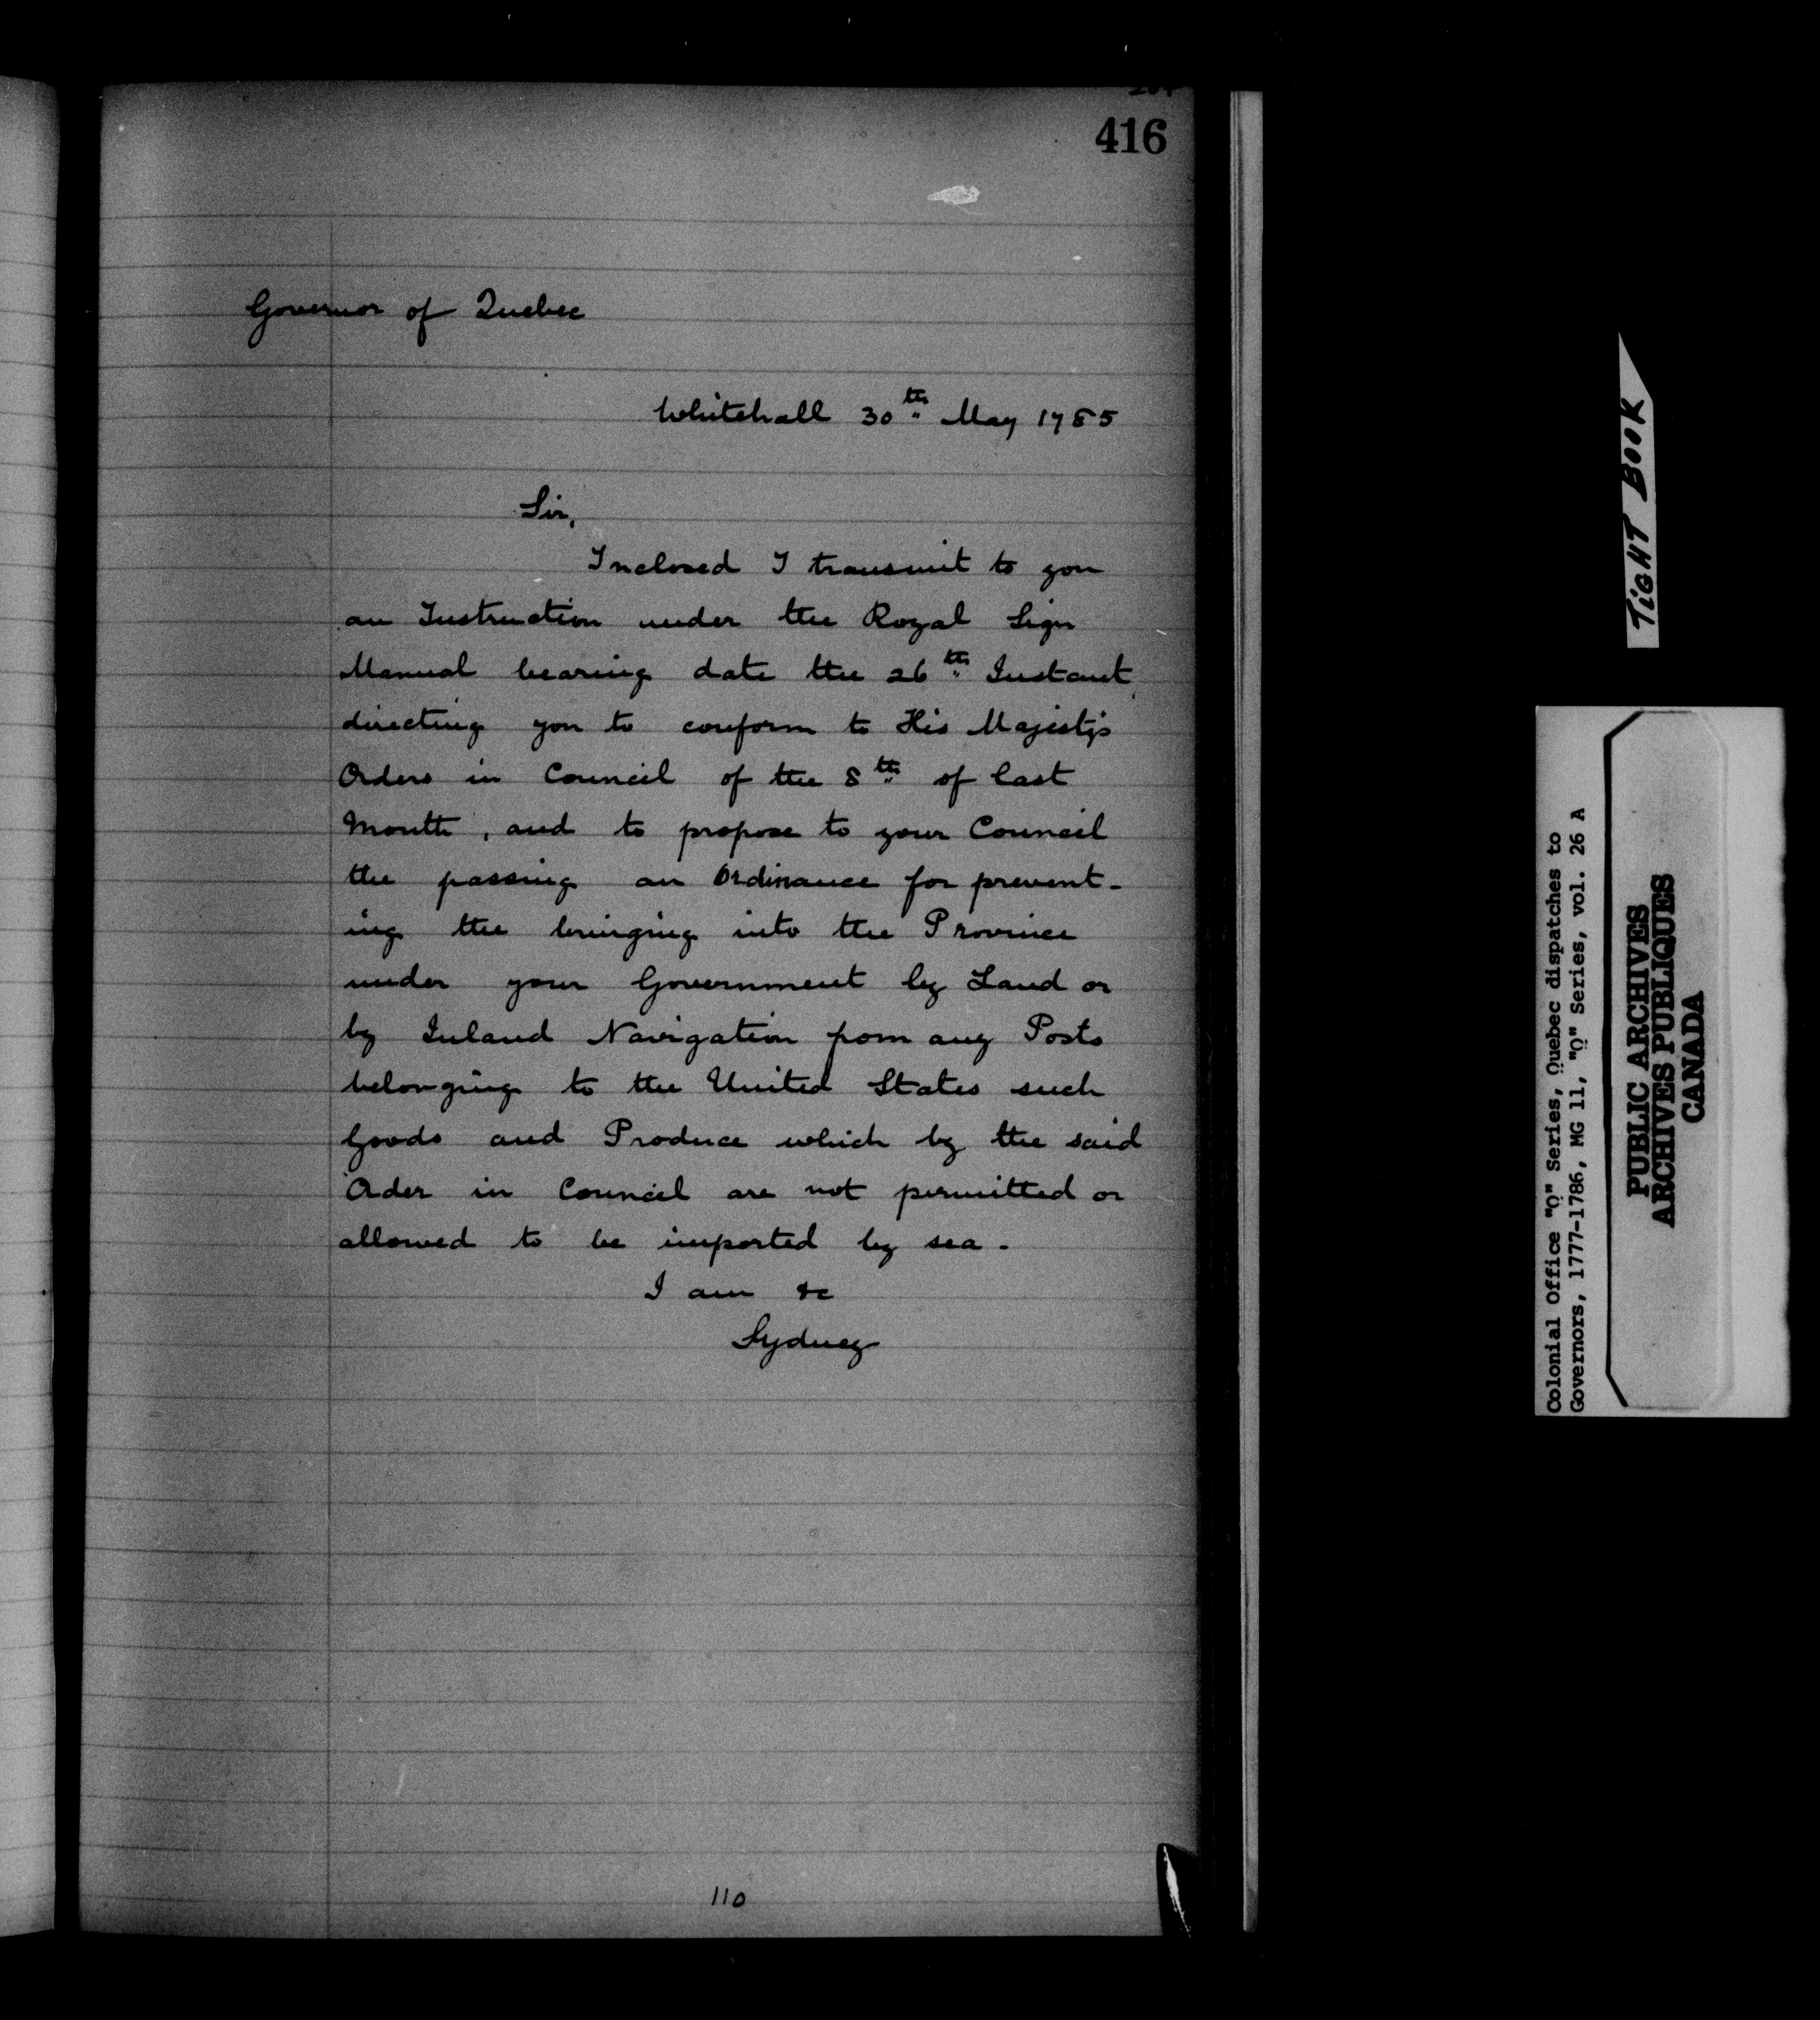 416
Governor of Quebec
Whitehall 30th May 1785
Sir,
Inclosed I transmit to you
an Instruction under the Royal Sign
Manual bearing date the 26th Instant
directing you to conform to His Majesty's
Orders in Council of the 8th of last
Month, and to propose to your Council
the passing an Ordinance for prevent-
ing the bringing into the Province
under your Government by Land or
by Inland Navigation from any Posts
belonging to the United States such
Goods and Produce which by the said
Order in Council are not permitted or
allowed to be imported by sea.
I am &c
Sydney
110
TIGHT BOOK
Colonial Office "Q" Series, Quebec dispatches to
Governors, 1777-1786, MG 11, "Q" Series, vol. 26 A
PUBLIC ARCHIVES
ARCHIVES PUBLIQUES
CANADA